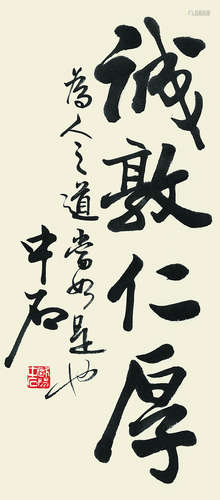 誠敦仁厚
為人之道當如是也
中石